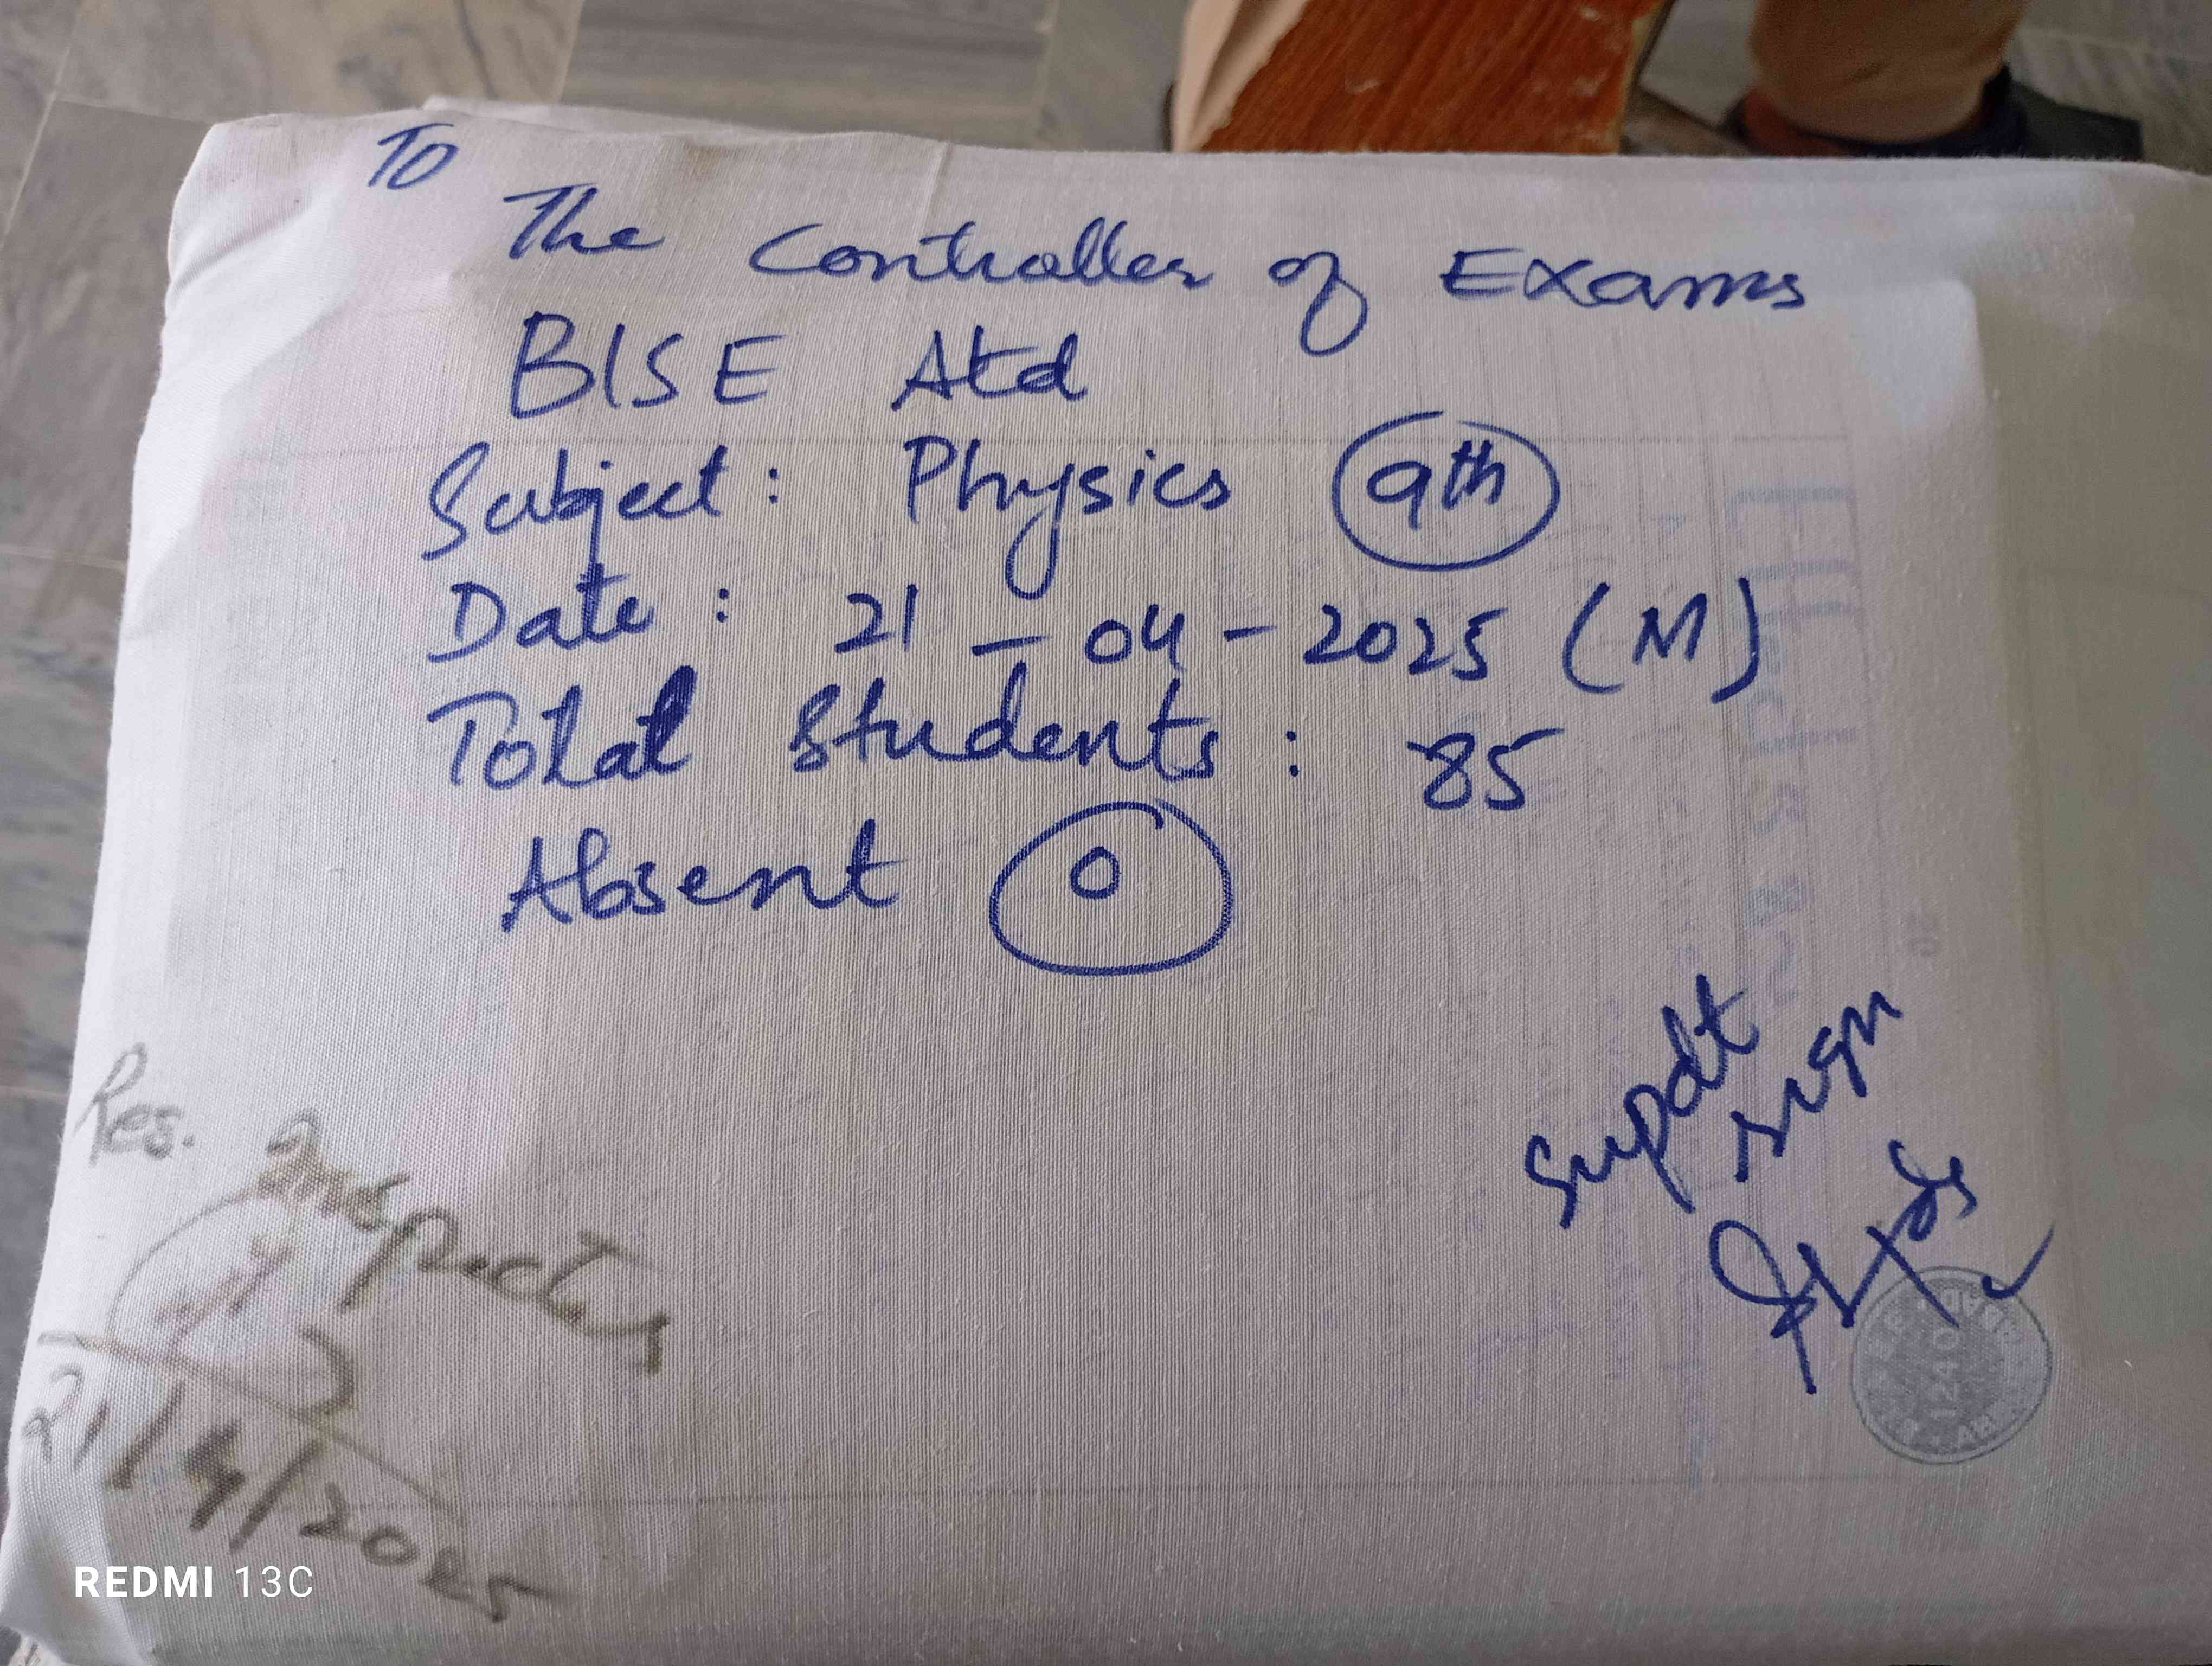 To
The Controller of Exams
BISE Atd
Subject: Physics 9th
Date: 21-04-2025 (M)
Total Students: 85
Absent 0
Supdt
sign
Res. Inspector
21/4/2025
1240
REDMI 13C